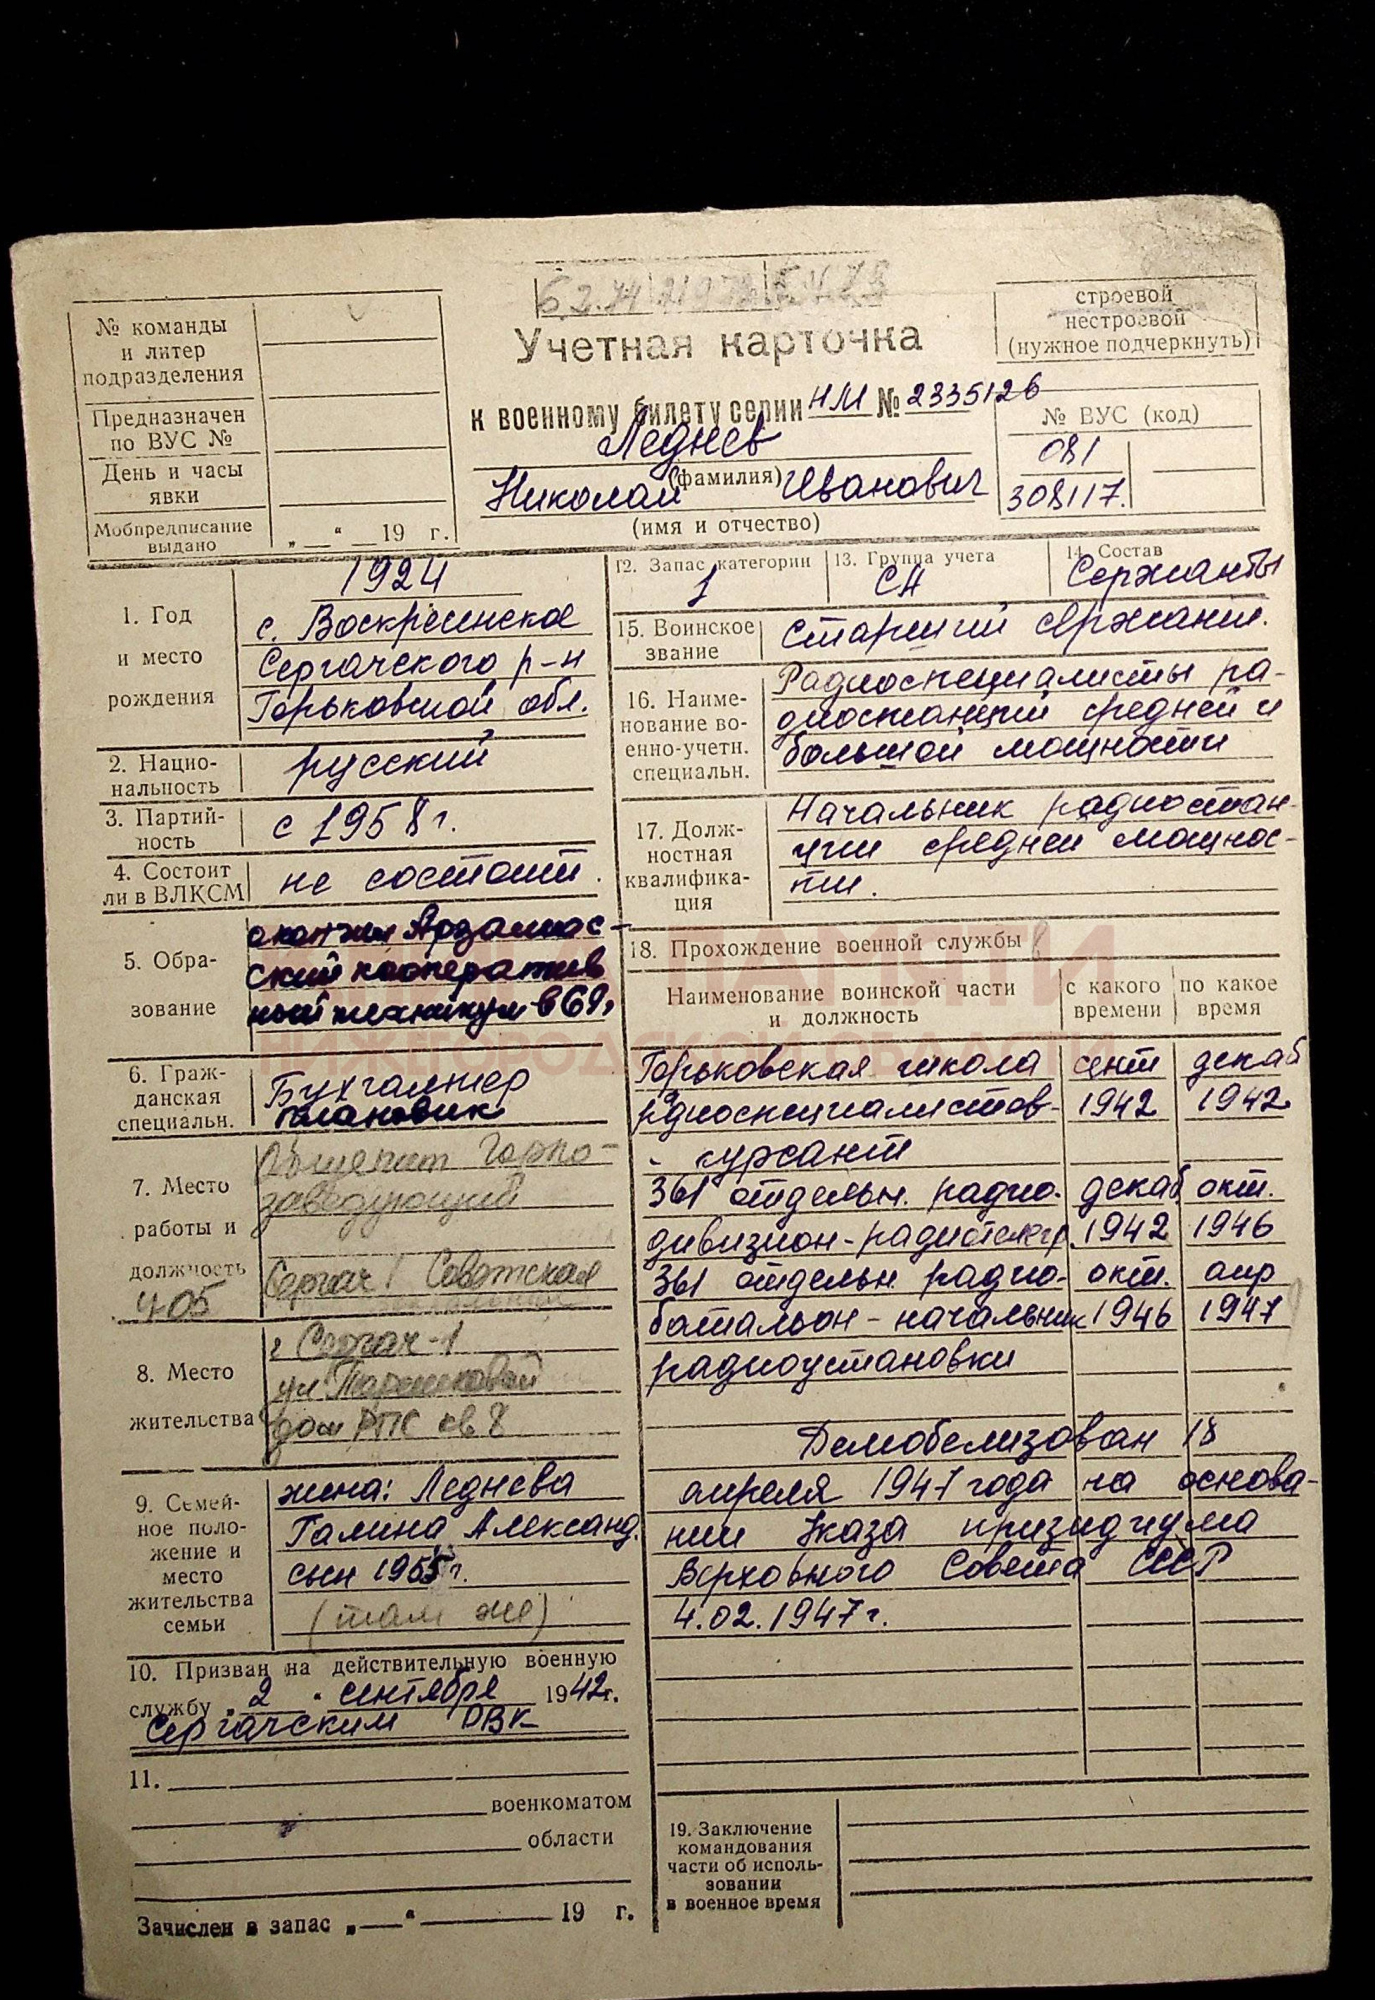 № команды
и литер
подразделения
Предназначен
по ВУС №
День и часы
явки
Мобпредписание
выдано
„ “ 19 г.
Учетная карточка
к военному билету серии НМ № 2335126
Леднев
(фамилия)
Николай Иванович
(имя и отчество)
строевой
нестроевой
(нужное подчеркнуть)
№ ВУС (код)
081
308117.
1. Год
и место
рождения
1924
с. Воскресенское
Сергачского р-н
Горьковской обл.
2. Нацио-
нальность
русский
3. Партий-
ность
с 1958 г.
4. Состоит
ли в ВЛКСМ
не состоит.
5. Обра-
зование
окончил Арзамас-
ский кооператив
ный техникум в 69г
6. Граж-
данская
специальн.
Бухгалтер
плановик
7. Место
работы и
должность
405
Общепит Горпо-
заведующий
Сергач, Советская
8. Место
жительства
г Сергач-1
ул
дом РПС кв 8
9. Семей-
ное поло-
жение и
место
жительства
семьи
жена: Леднева
Галина Александ.
сын 1955 г.
(там же)
10. Призван на действительную военную
службу „2“ сентября 1942 г.
Сергачским РВК
11.
военкоматом
области
Зачислен в запас „ “ 19 г.
12. Запас категории
1
13. Группа учета
СА
14. Состав
Сержанты
15. Воинское
звание
старший сержант.
16. Наиме-
нование во-
енно-учетн.
специальн.
Радиоспециалисты ра-
диостанций средней и
большой мощности
17. Долж-
ностная
квалифика-
ция
Начальник радиостан-
ции средней мощнос-
ти.
18. Прохождение военной службы
Наименование воинской части
и должность
с какого
времени
по какое
время
Горьковская школа сент декаб
рдиоспециалистов- 1942 1942
- курсант
361 отдельн. радио- декаб окт.
дивизион-радиотелегр. 1942 1946
361 отдельн. радио- окт. апр
батальон - начальник 1946 1947
радиоустановки
Демобелизован 18
апреля 1947 года на основа-
нии Указа призидиума
Верховного Совета СССР
4.02.1947 г.
19. Заключение
командования
части об исполь-
зовании
в военное время
ПАМЯТИ
НИЖЕГОРОДСКОЙ ОБЛАСТИ